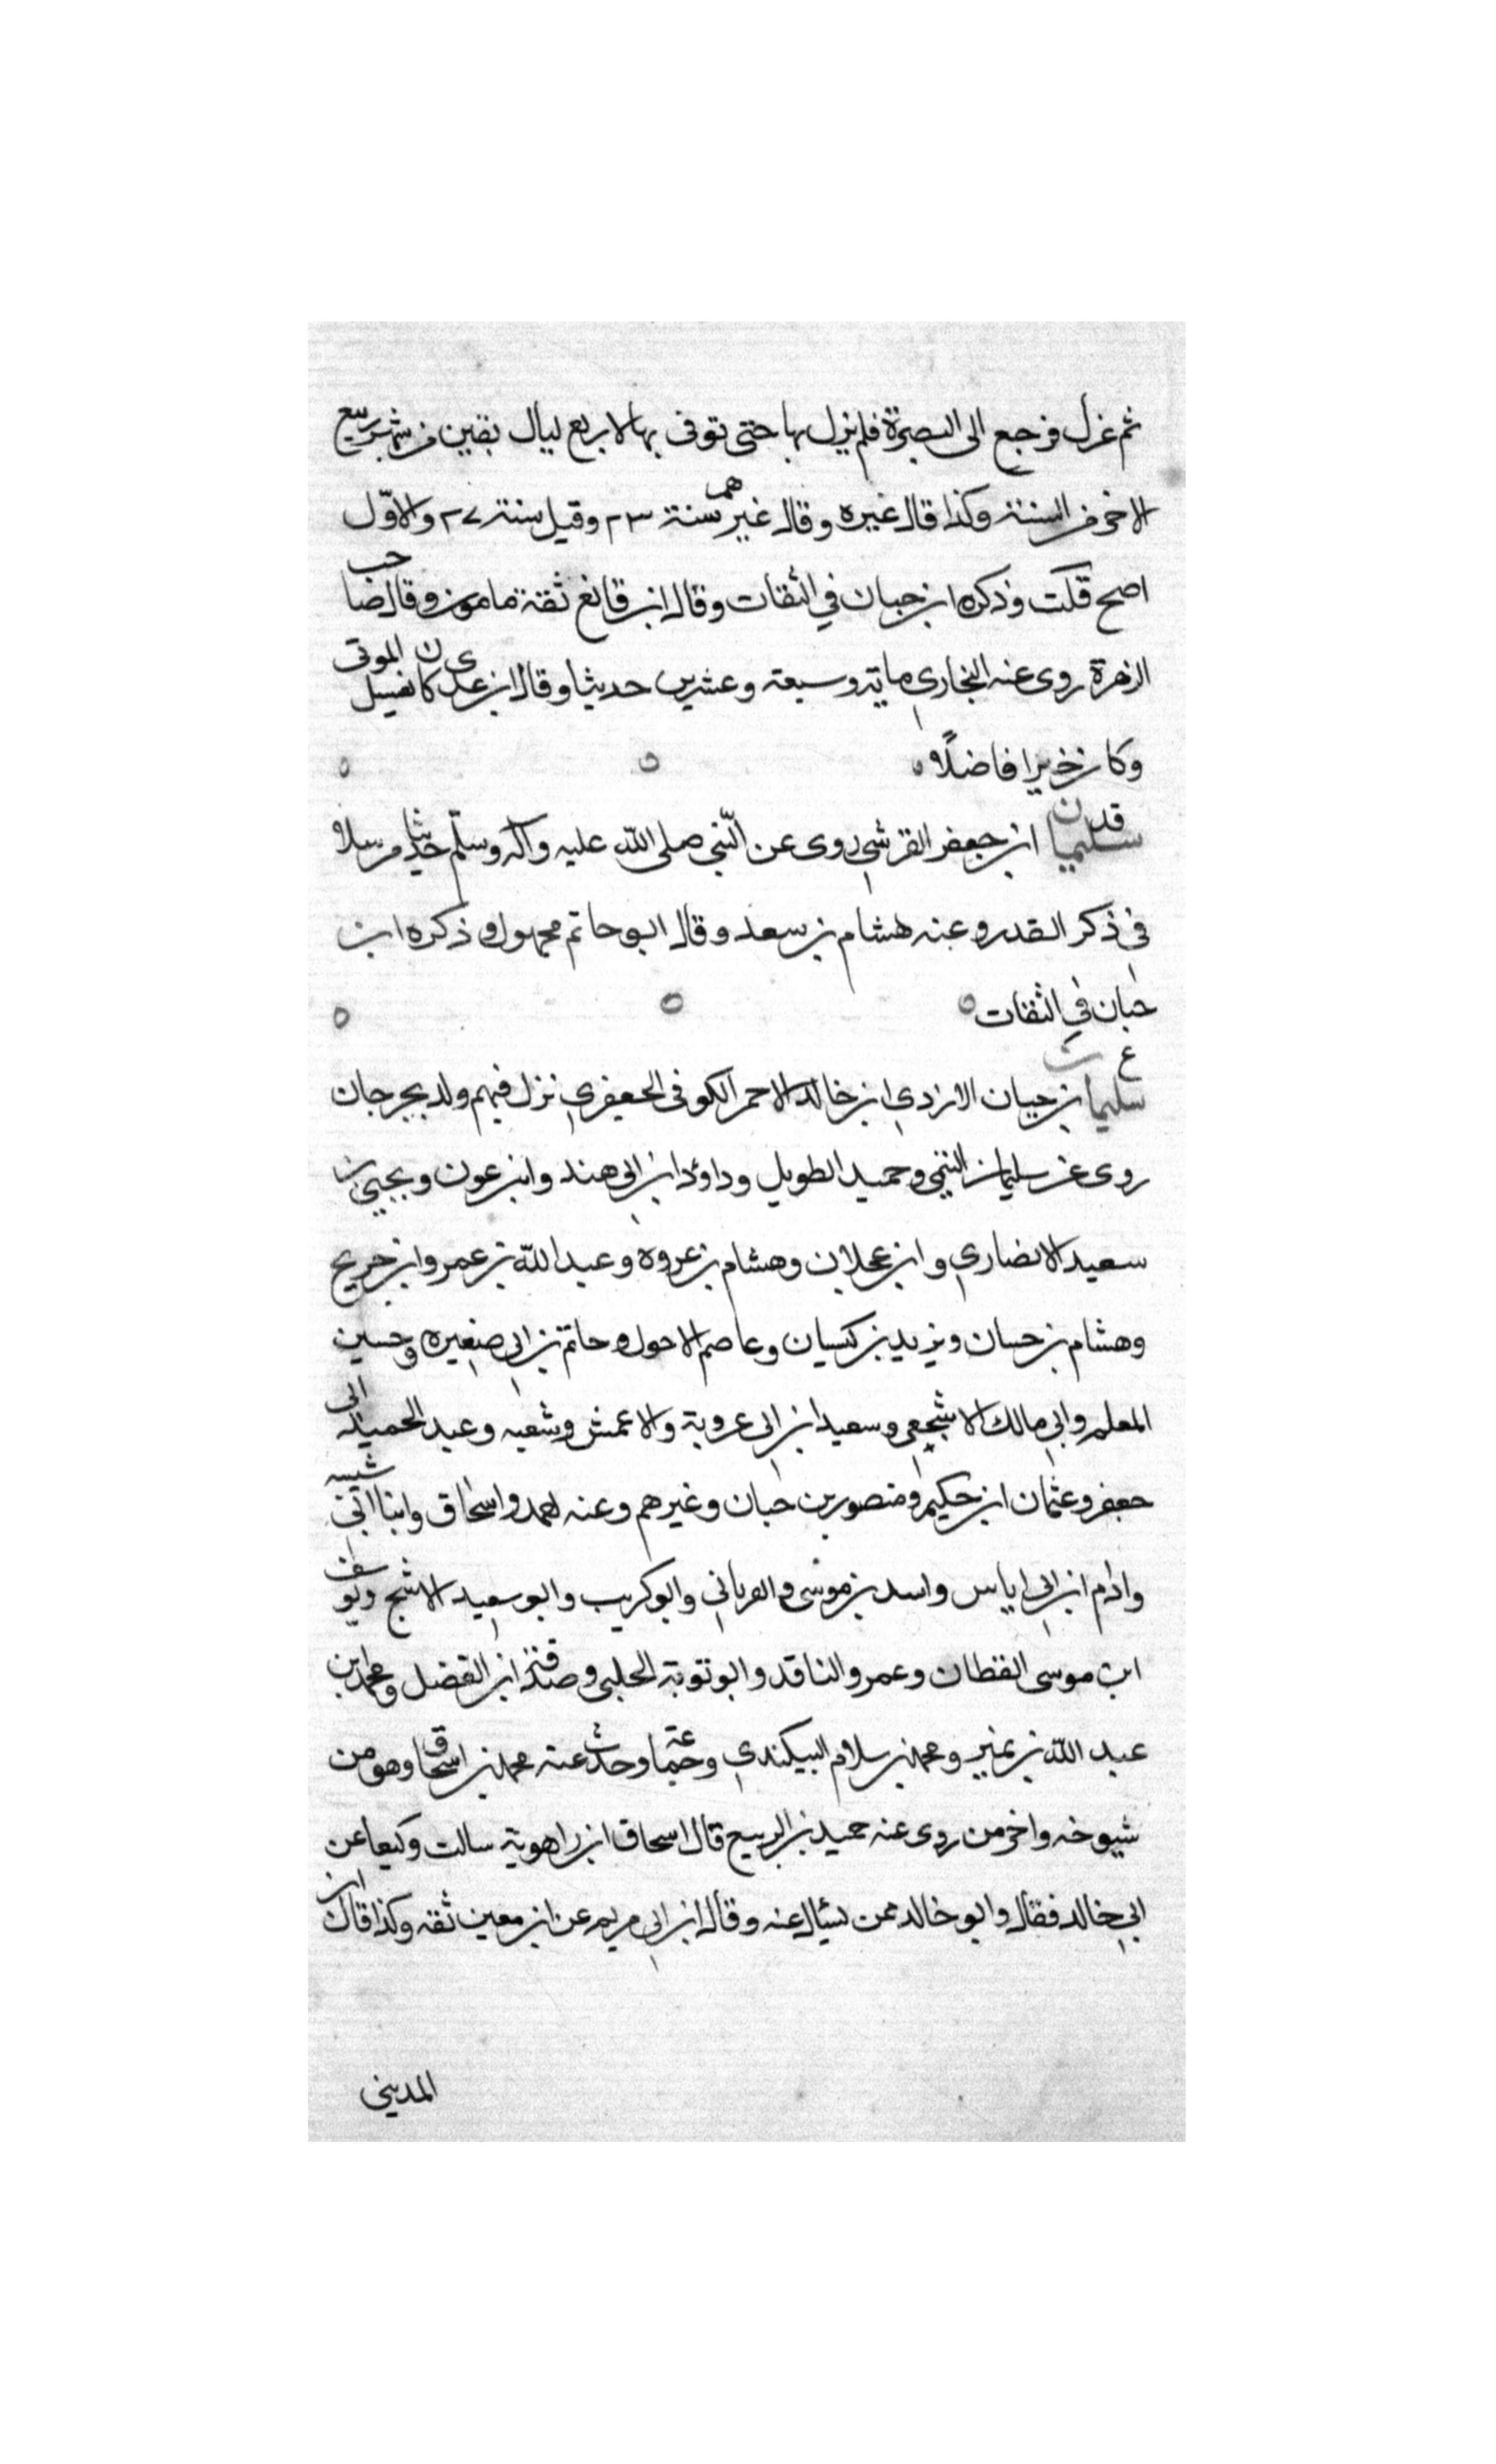 ثم عزل فرجع الى البصرة فلم يزل بها حتى توفى بها لاربع ليال بقين من شهر ربيع
الاخر من السنة وكذا قال غيره وقال غيرهم سنة ٢٣ وقيل سنة ٢٧ والاوّل
اصح قلت وذكره ابن حبان في الثقات وقال ابن قانع ثقة مامون وقال صاحب
الزهرة روى عنه البخاري ماية وسبعة وعشرين حديثا وقال ابن عدى كان يغسيل الموتى
وكان خيرا فاضلًا
قد سليمان ابن جعفر القرشي روى عن النّبي صلى اللّه عليه وآله وسلّم حديثا مرسلا
في ذكر القدر وعنه هشام بن سعد وقال ابو حاتم مجهول وذكره ابن
حبان في الثقات
ع سليمان بن حيان الازدي ابن خالد الاحمر الكوفى الجعفري نزل فيهم ولد بجرجان
روى عن سليمان التيمي وحميد الطويل وداؤد ابن ابي هند وابن عون ويحيى بن
سعيد الانصاري وابن عجلان وهشام بن عروه وعبد اللّه بن عمر وابن جريج
وهشام بن حسان ويزيد بن كيسان وعاصم الاحول وحاتم بن ابي صغيره وحسين
المعلم وابي مالك الاشجعي وسعيد ابن ابي عروبة والاعمش وشعبه وعبد الحميد
جعفر وعثمان ابن حكيم ومنصور بن حبان وغيرهم وعنه احمد واسحاق وابنا ابي شيبه
وادم ابن ابي اياس واسد بن موسى والفريابي وابو كريب وابو سعيد الاشج ويوسف
ابن موسى القطان وعمرو الناقد وابو توبة الحلبي وصدقة ابن الفضل ومحمد ابن
عبد اللّه بن نمير ومحمد بن سلام البيكندي وجماعة وحدث عنه محمد بن اسحاق وهو من
شيوخه واخر من روى عنه حميد بن الربيع قال اسحاق ابن راهوية سالت وكيعا عن
ابي خالد فقال وابو خالد ممن يسئال عنه وقال ابن ابي مريم عن ابن معين ثقه وكذا قال ابن
المديني